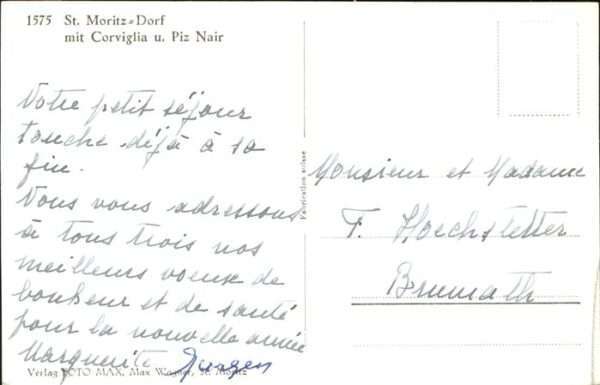 1575 St. Moritz-Dorf
mit Corviglia u. Piz Nair
Votre petit séjour
touche déjà à sa
fin.
Vous vous adressons
à tous trois nos
meilleurs voeux de
bonheur et de santé
pour la nouvelle année
Marguerite Jürgen
Verlag FOTO MAX, Max Wagner, St. Moritz
Fabrication suisse
Monsieur et Madame
F. Hoechstetter
Brumath